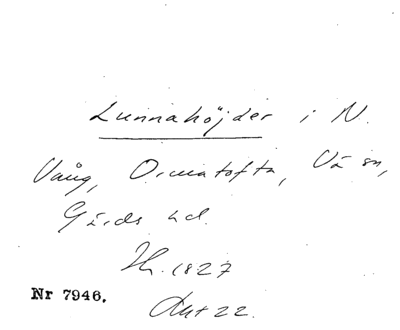 Lunnahöjder i N.
Vång, Ormatofta, Vä sn,
Gärds hd.
Sk. 1827
Nr 7946.
Akt 22.